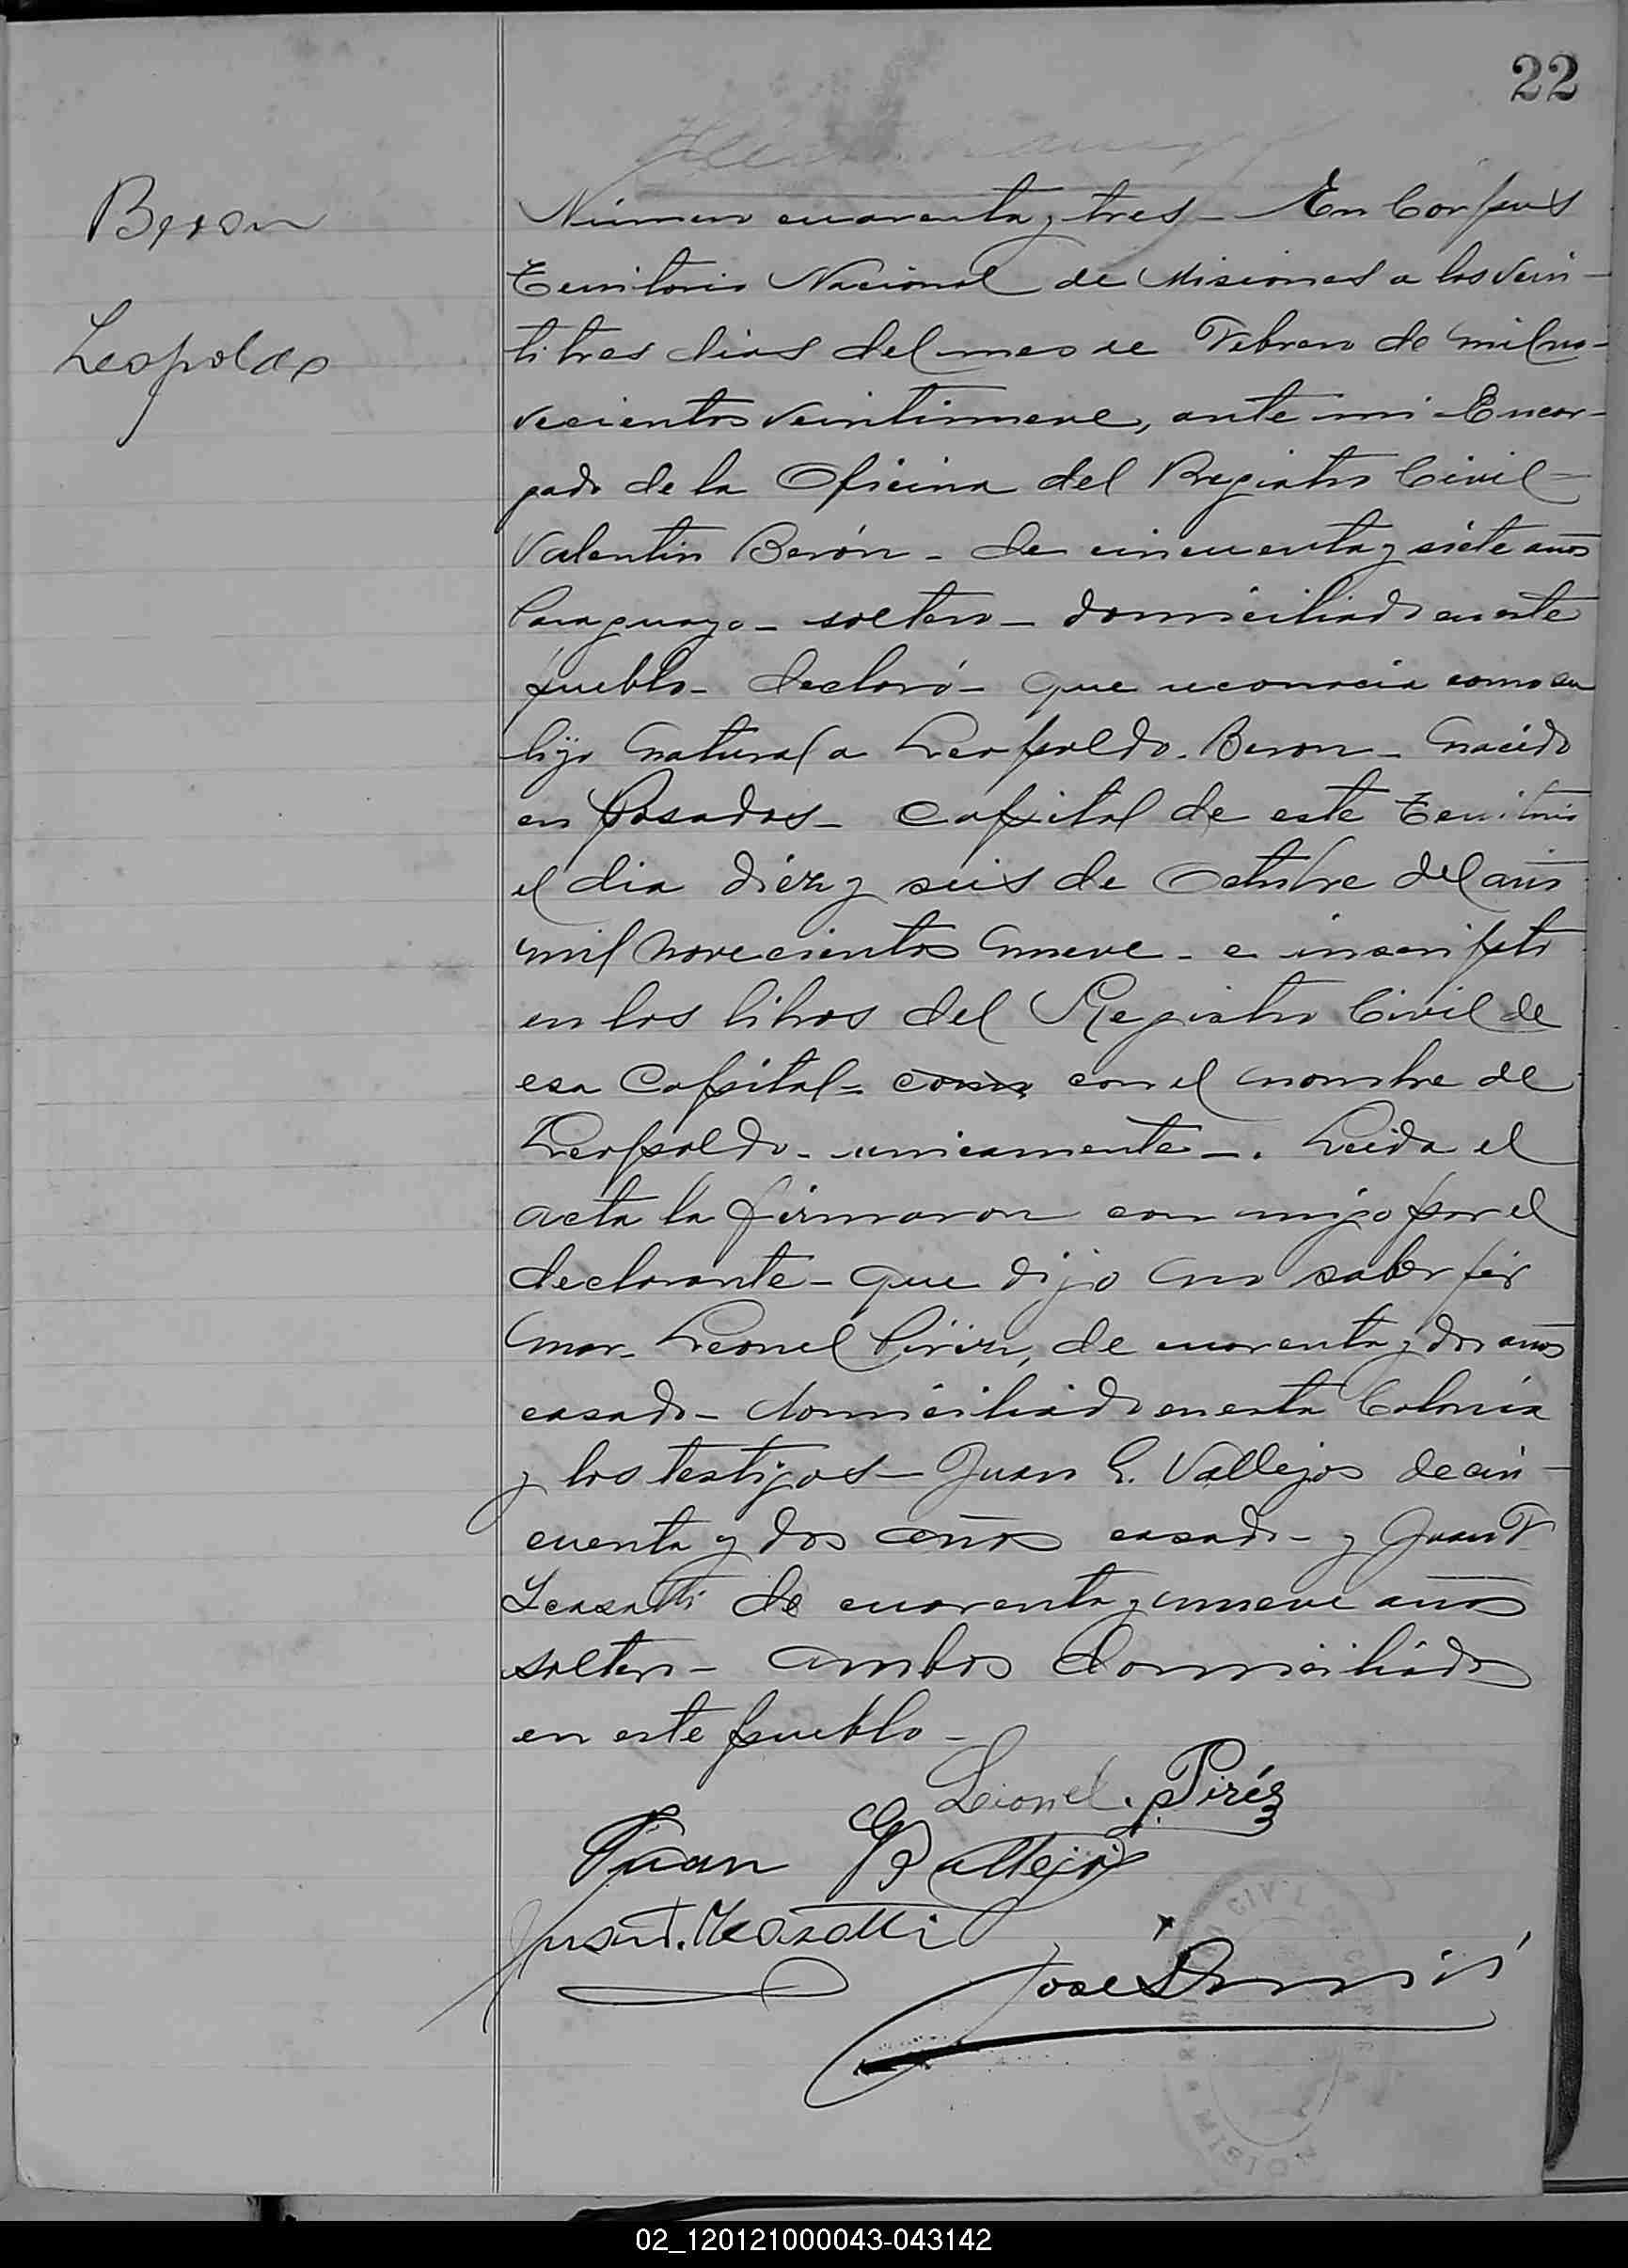 22
Beron
Leopoldo
Número cuarenta y tres - En Córpus
Territorio Nacional de Misiones a los vein-
titres dias del mes de Febrero de mil no-
vecientos veintinueve, ante mi Encar-
gado de la Oficina del Registro Civil -
Valentin Berón - de cincuenta y siete años
Paraguayo - soltero - domiciliado en este
pueblo - declaró - que reconocia como su
hijo natural a Leopoldo Beron - nacido
en Posadas - Capital de este Territorio
el dia diez y seis de Octubre del año
mil novecientos nueve - e inscripto
en los libros del Registro Civil de
esa Capital - como con el nombre de
Leopoldo - unicamente -. Leida el
acta la firmaron con migo por el
declarante - que dijo no saber fir
mar - Leonel Piriz, de cuarenta y dos años
casado - domiciliado en esta Colonia
y los testigos - Juan G. Vallejos de cin-
cuenta y dos años casado - y Juan T
Leasatti de cuarenta y nueve años
soltero - ambos domiciliados
en este pueblo -
Lionel. Piréz
Juan G Ballejo
Juan T. Leasatti
José
02_120121000043-043142